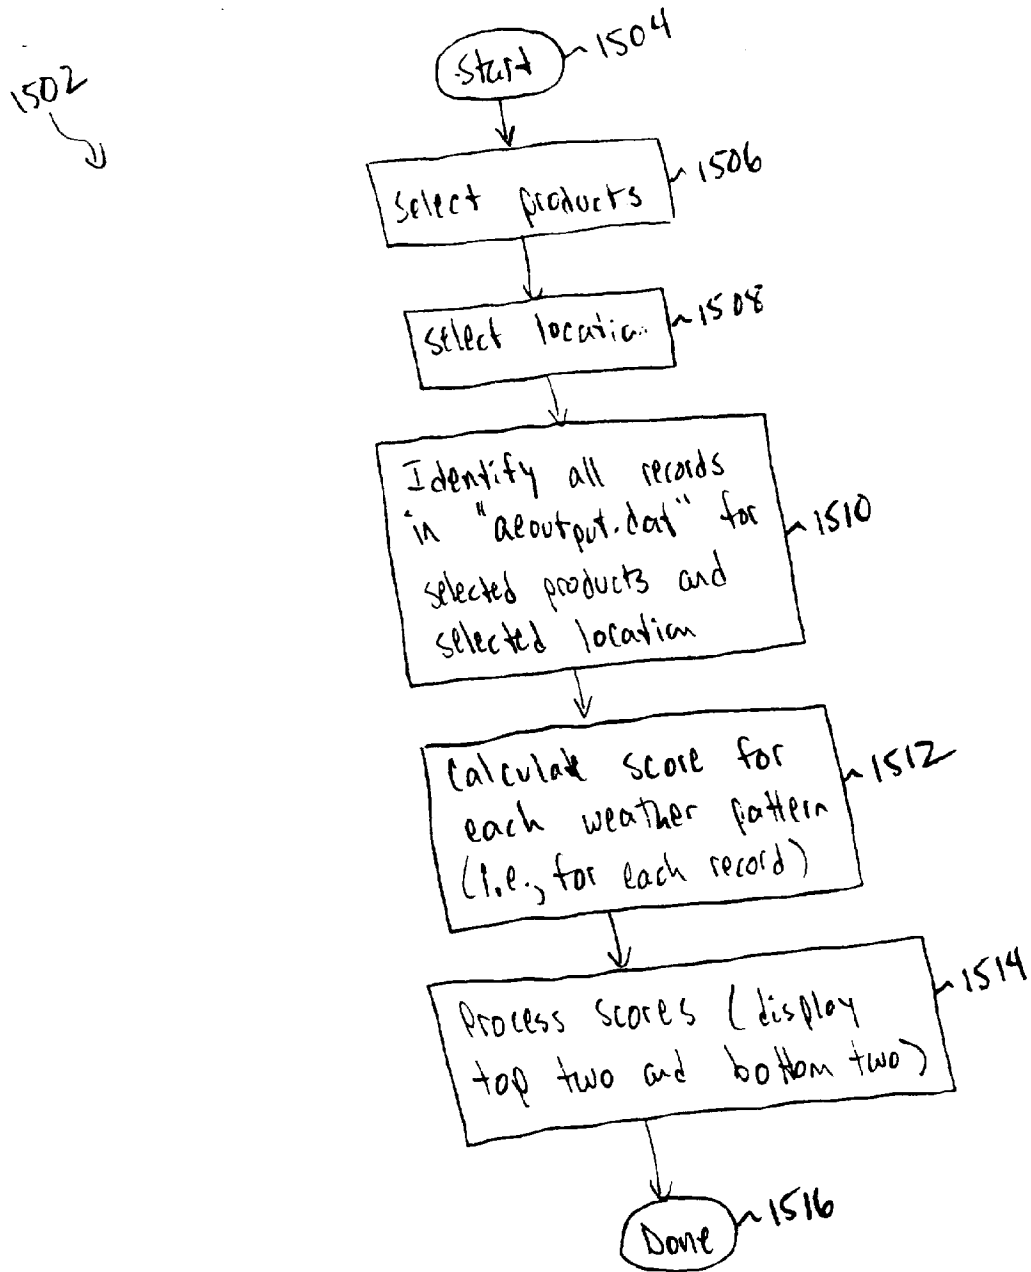 1502
Start
1504
Select products
1506
Select location
1508
Identify all records
in "aeoutput.dat" for
selected products and
selected location
1510
Calculate score for
each weather pattern
(i.e., for each record)
1512
Process scores (display
top two and bottom two)
1514
Done
1516